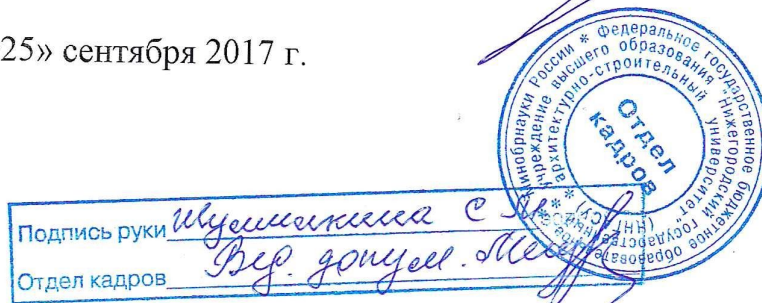 25» сентября 2017 г.
Минобрнауки России * Федеральное государственное бюджетное образовательное
учреждение высшего образования "Нижегородский государственный
архитектурно-строительный университет" (ННГАСУ) *
Отдел
кадров
Подпись руки
Отдел кадров Вед. докум.